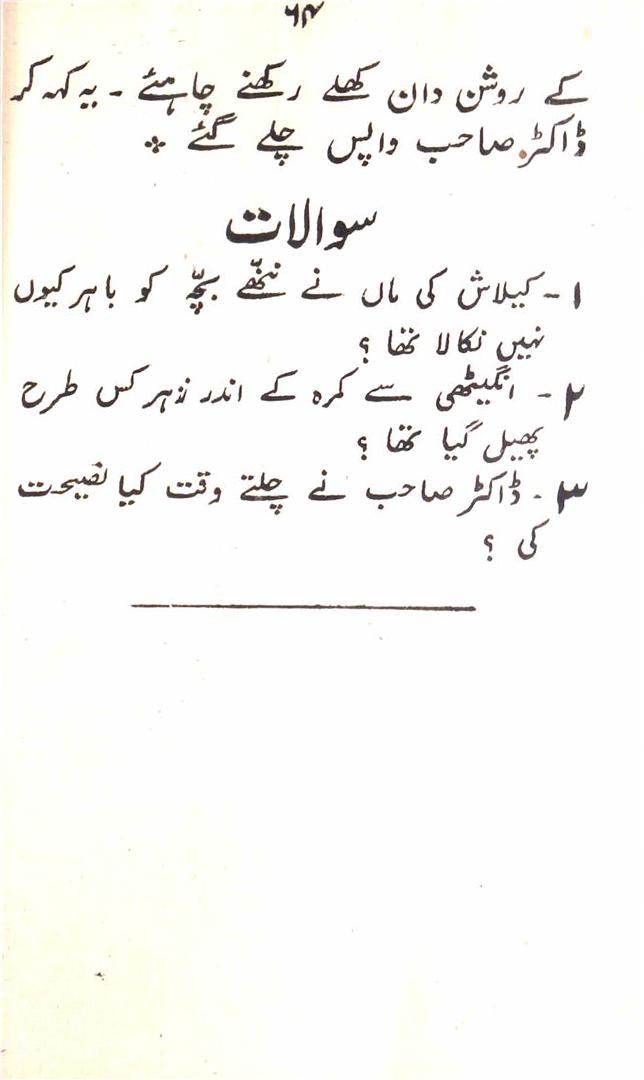 ۶۴
کے روشن دان کھلے رکھنے چاہئے ۔ یہ کہہ کر
ڈاکٹر صاحب واپس چلے گئے ⁘
سوالات
۱ ۔ کیلاش کی ماں نے ننھّے بچّہ کو باہر کیوں
نہیں نکالا تھا ؟
۲ ۔ انگیٹھی سے کمرہ کے اندر زہر کس طرح
پھیل گیا تھا ؟
۳ ۔ ڈاکٹر صاحب نے چلتے وقت کیا نصیحت
کی ؟